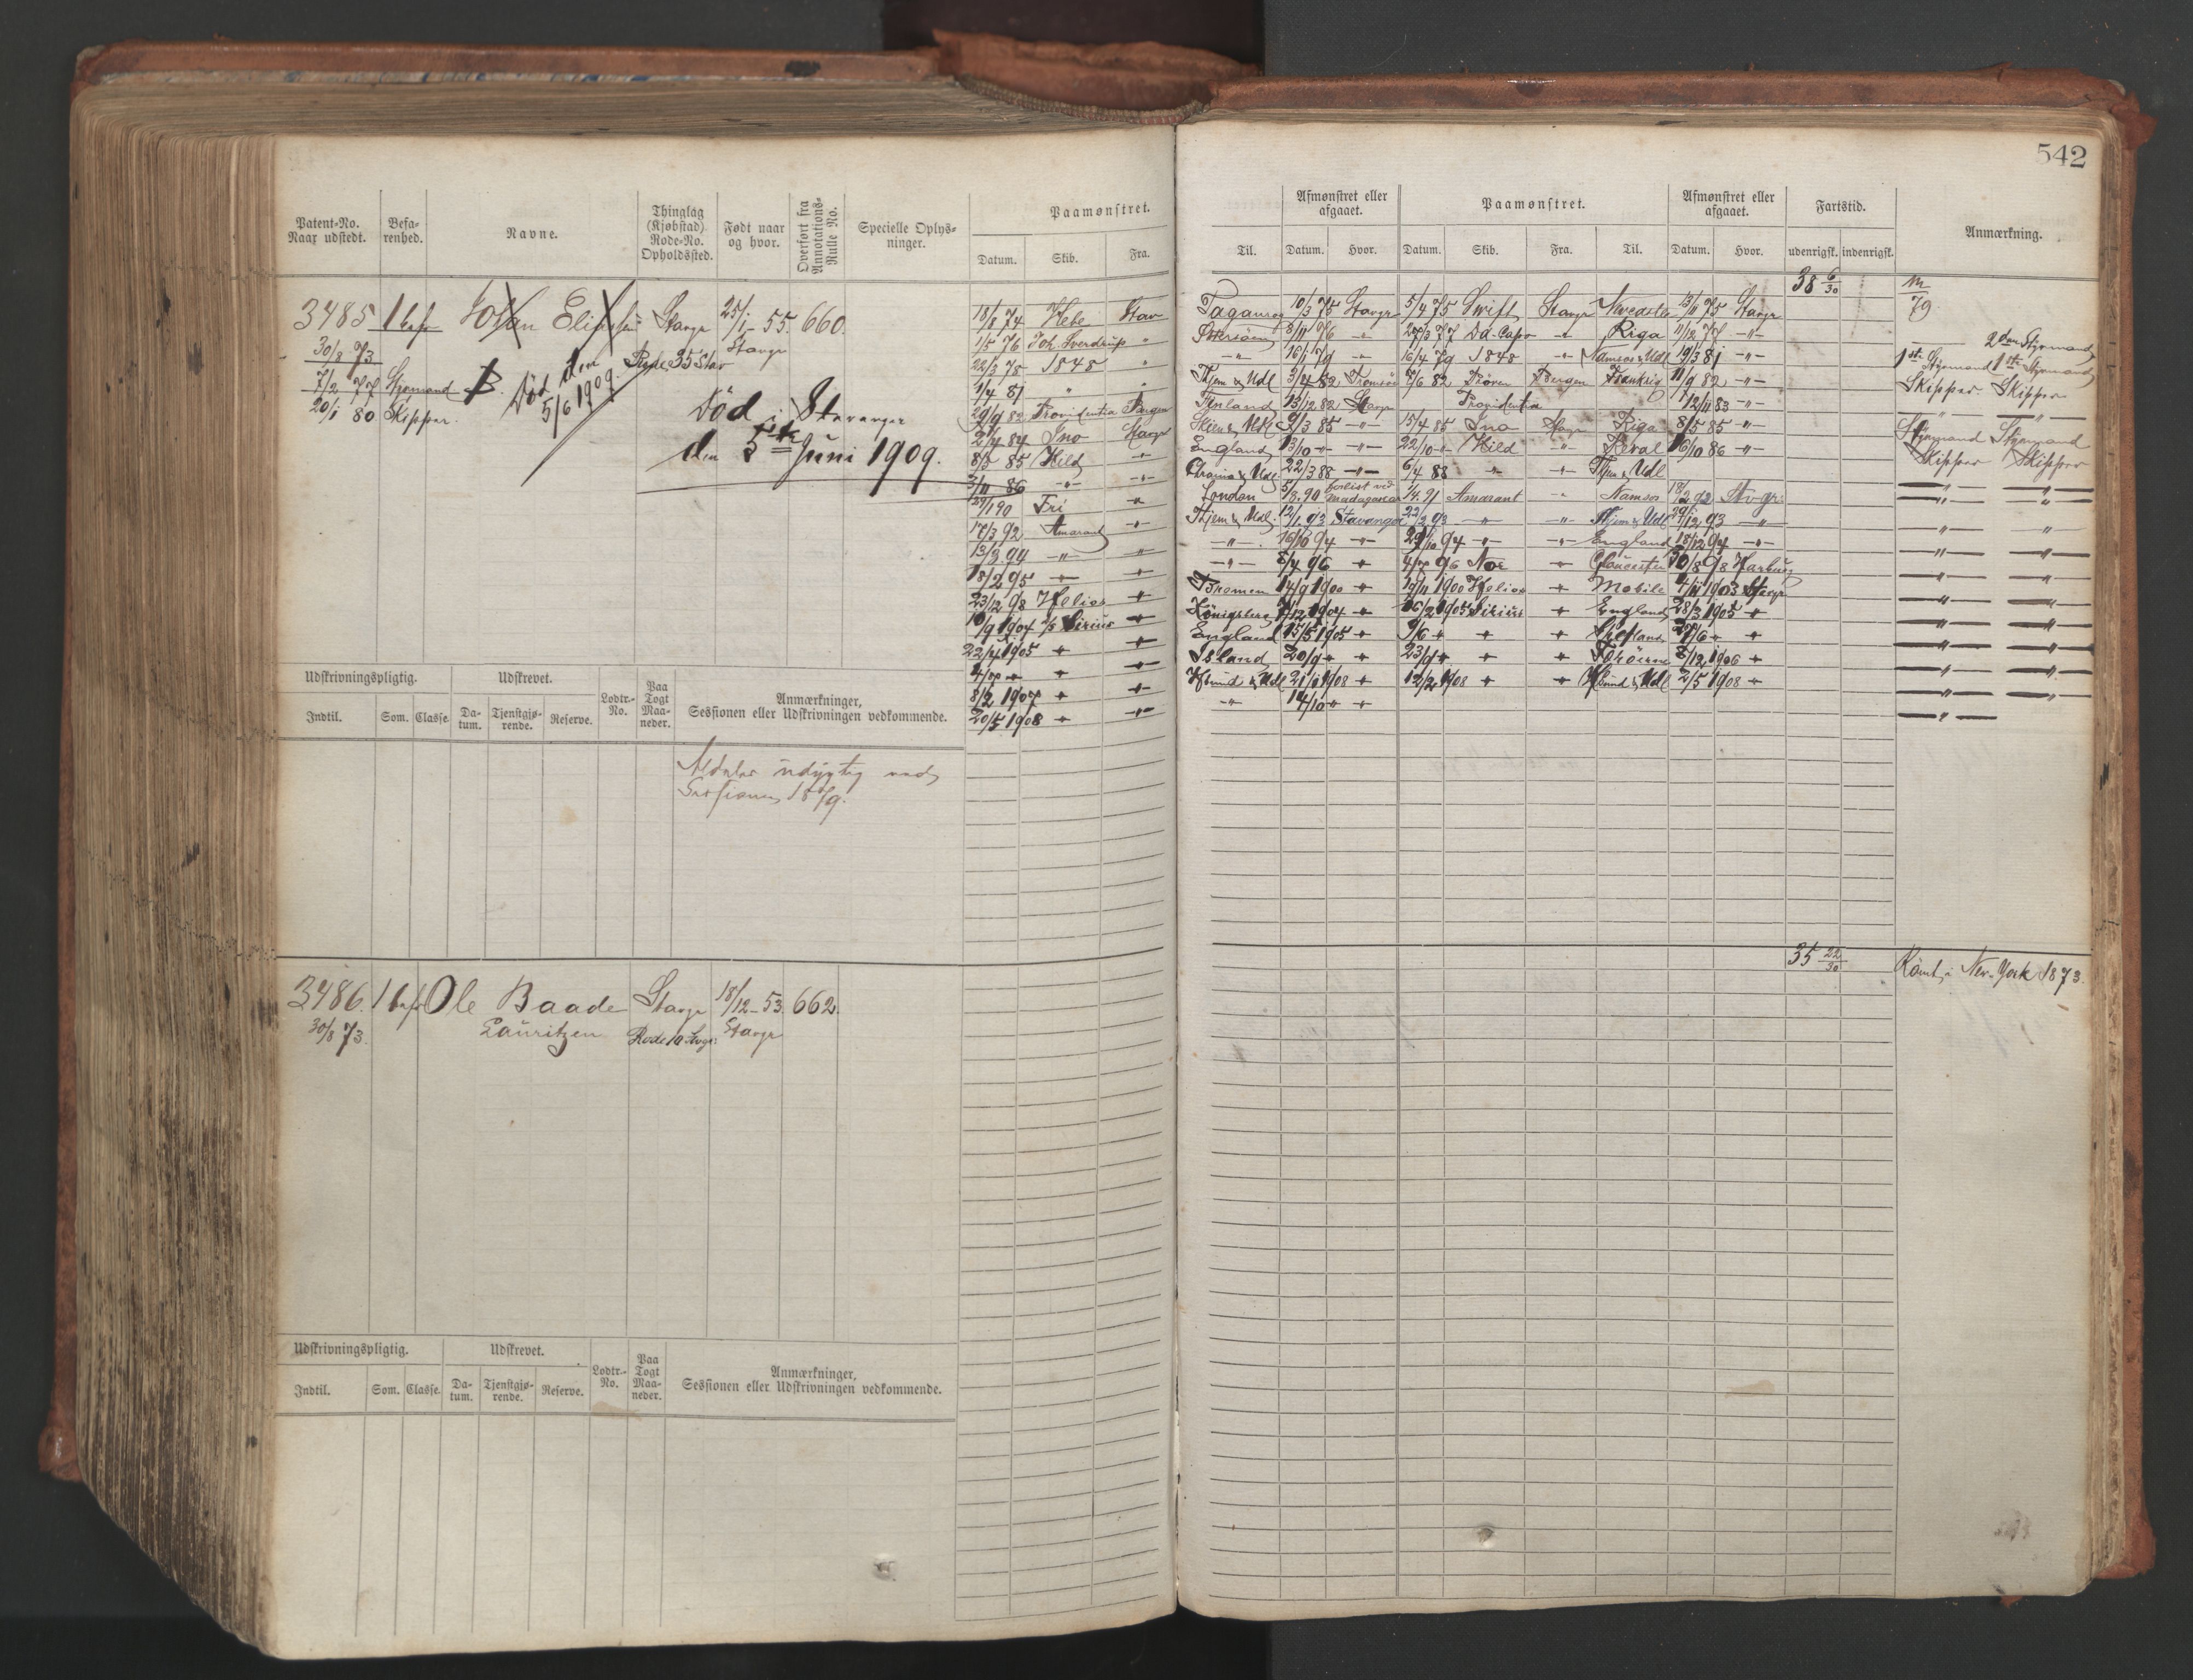 542
Patent-No. Naar udstedt.
Befa-renhed.
Navne.
Thinglag (Kjøbstad) Rode-No. Opholdssted.
Født naar og hvor.
Overført fra Annotations-Rulle No.
Specielle Oplys-ninger.
Paamønstret.
Datum. Skib. Fra.
Til.
Afmønstret eller afgaaet.
Datum. Hvor.
Paamønstret.
Datum. Skib. Fra. Til.
Afmønstret eller afgaaet.
Datum. Hvor.
Fartstid.
udenrigsk. indenrigsk.
Anmærkning.
3485 1 Stavgr 25/1-55. 660.
30/8 73 Stavgr
7/2 77 Styrmand Død den 5/6 1909. Rode 35 Stav
20/1 80 Skipper.
Død i Stavanger
den 5te Juni 1909.
38 6/30
18/8 74 Hebe Stav Taganrog 10/3 75 Stavgr 5/4 75 Swift Stavgr Newcastle 13/11 75 Stavgr 79
1/5 76 Joh. Sverdrup " Østersøen 8/11 76 " 27/3 77 Da Capo " Riga 11/12 77 -"- 2den Styrmand
22/3 78 1848 " -"- 16/1 79 " 16/4 79 1848 -"- Namsos & Udl 19/3 81 -"- 1ste Styrmand 1ste Styrmand
1/4 81 " " Hjem & Udl 3/4 82 Tromsø 7/6 82 Bergen 11/9 82 -"- Skipper Skipper
29/9 82 Providentia Bergen 13/12 82 Stavgr Providentia 12/11 83 -"-
2/4 84 Ino Stavgr Hjem & Udl 9/3 85 -"- 15/4 85 Ino Stavgr Riga 8/5 85 -"- Styrmand Styrmand
8/5 85 Hild -"- England 13/10 -"- -"- 22/10 -"- Hild -"- Reval 16/10 86 -"- Skipper Skipper
3/11 86 -"- -"- 22/3 88 -"- 6/4 88 " -"- Hjem & Udl
29/1 90 Fri -"- London 5/8.90 forlist ved Madagascar 1/4.91 Amarant -"- Namsos 18/2 92 Stvgr:
17/3 92 Amarant -"- Hjem & Udl. 12/1 93 Stavanger 22/2 93 -"- -"- Hjem & Udl 29/12 93 -"-
13/3 94 -"- -"- -"- 16/10 94 -"- 29/10 94 -"- -"- England 18/12 94 -"-
18/2 95 -"- -"- -"- 8/4 96 " 4/7 96 Noe " Gloucester 30/8 98 Harburg
23/12 98 Helios " Bremen 14/9 1900 " 19/11 1900 Helios " Mobile 4/11 1903 Stavgr
10/9 1904 D/S Sirius " Königsberg 7/12 1904 " 16/2 1905 Sirius " England 28/3 1905 "
22/4 1905 " " England 15/5 1905 " 9/6 " " " Shetland 27/6 " "
4/7 " " " Island 20/9 " " 23/9 " " " 8/12 1906 "
8/2 1907 " " & Udl 21/1 1908 " 12/2 1908 " " & Udl 2/5 1908 "
20/5 1908 " " -"- 14/10 " "
Udskrivningspligtig. Udskrevet. Lodtr.-No. Paa Togt Maa-neder. Anmærkninger, Sessionen eller Udskrivningen vedkommende.
Indtil. Som. Classe. Da-tum. Tjenstgjø-rende. Reserve.
udygtig ved
Sessionen 1879.
3486. 1 Ole Baade Stavgr 18/12-53 662. 35 22/30 Rømt i New-York 1873.
30/8 73. Lauritzen Rode 10 Stvgr: Stavgr
Udskrivningspligtig. Udskrevet. Lodtr.-No. Paa Togt Maa-neder. Anmærkninger, Sessionen eller Udskrivningen vedkommende.
Indtil. Som. Classe. Da-tum. Tjenstgjø-rende. Reserve.